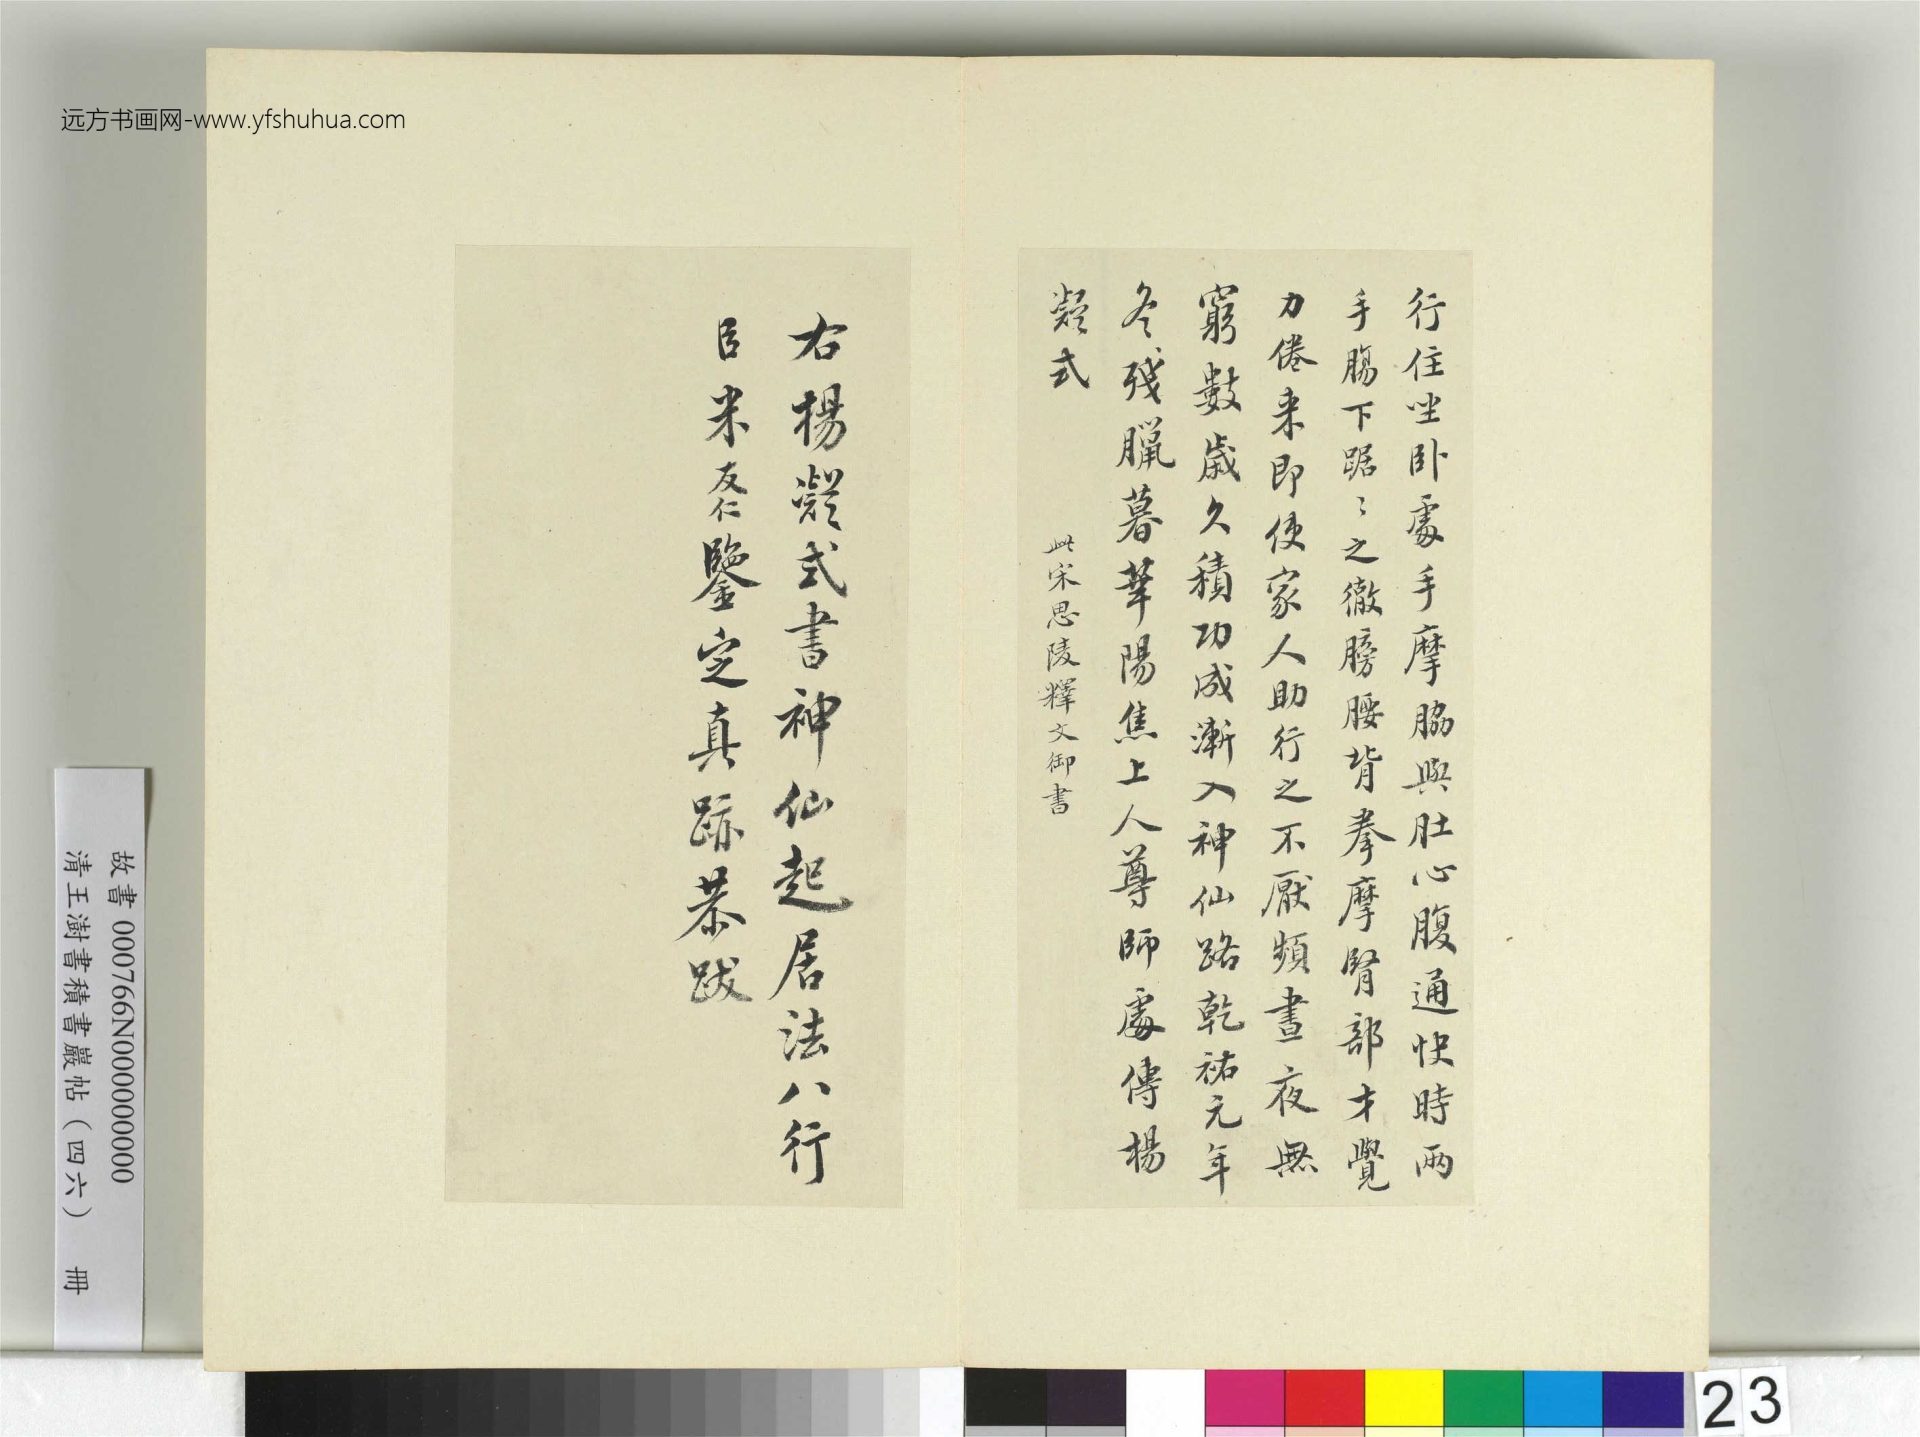 远方书画网-www.yfshuhua.com
行住坐卧處手摩脇與肚心腹通快時兩
手膓下踞〻之徹膀腰背拳摩腎部才覺
力倦来即使家人助行之不厭頻晝夜無
窮數歲久積功成漸入神仙路乾祐元年
冬殘臘暮華陽焦上人尊師處傳楊
凝式
此宋思陵釋文御書
右楊凝式書神仙起居法八行
臣米友仁鑒定真跡恭跋
故書 000766N000000000
清王澍書積書巖帖（四六） 冊
23